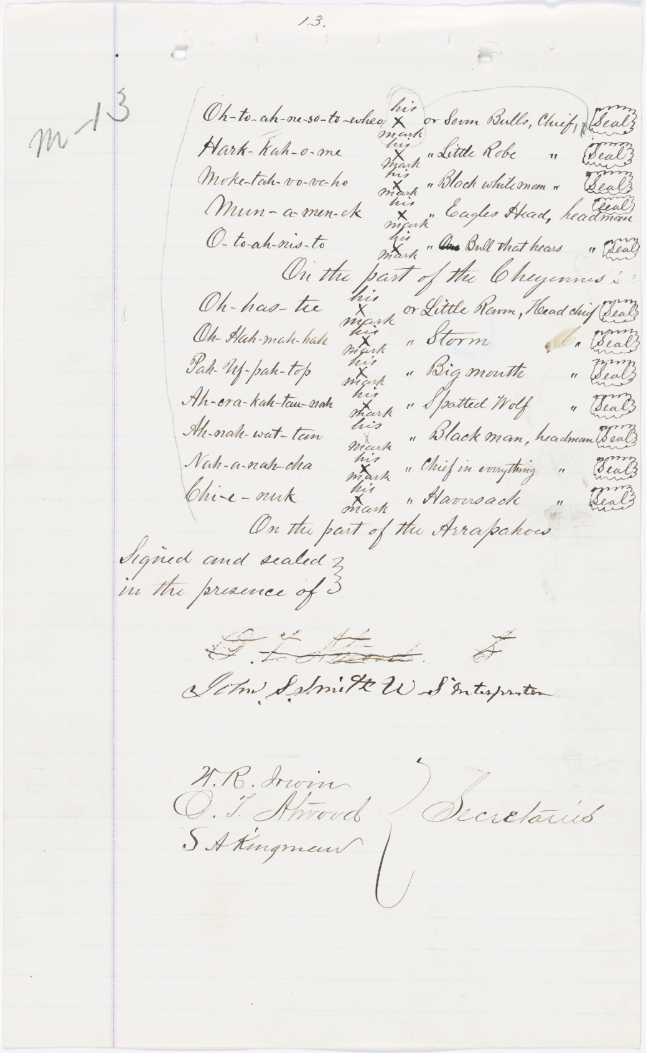 13.
M-13
Oh-to-ah-ne-so-to-wheo his x mark or Seven Bulls, Chief, Seal
Hark-kah-o-me his x mark " Little Robe " Seal
Moke-tah-vo-ve-ho his x mark " Black white man " Seal
Mun-a-men-ek his x mark " Eagles Head, headman Seal
O-to-ah-nis-to his x mark " Bull that hears " Seal
On the part of the Cheyennes
Oh-has-tee his x mark or Little Raven, Head chief Seal
Oh-Hah-mah-hah his x mark " Storm " Seal
Pah-uf-pah-top his x mark " Big mouth " Seal
Ah-cra-kah-tau-nah his x mark " Spotted Wolf " Seal
Ah-nah-wat-tan his x mark " Black man, headman Seal
Nah-a-nah-cha his x mark " Chief in everything " Seal
Chi-e-nuk his x mark " Haversack " Seal
On the part of the Arrapahoes
Signed and sealed
in the presence of
John S. Smith U S Interpreter
W. R. Irwin
O. T. Atwood Secretaries
S A Kingman